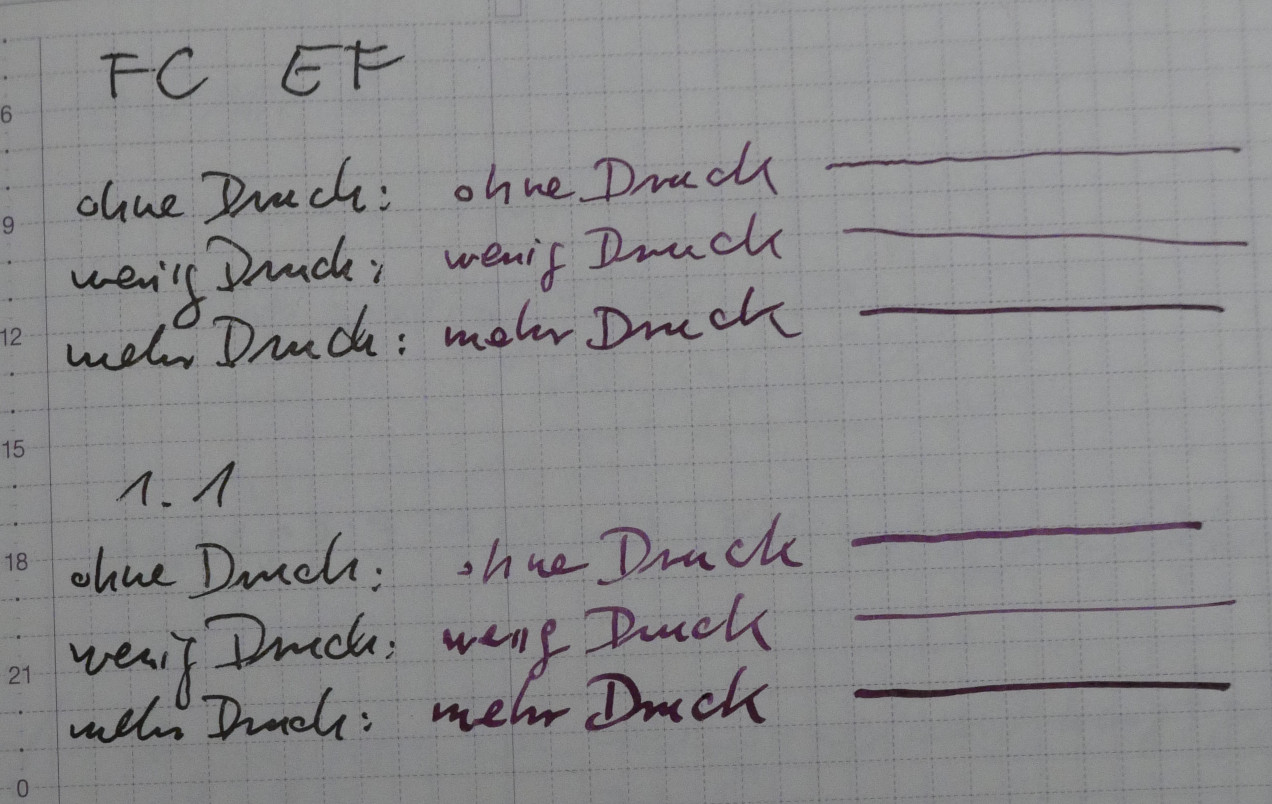 FC EF
6
ohne Druck: ohne Druck
9
wenig Druck: wenig Druck
12
mehr Druck: mehr Druck
15
1.1
18
ohne Druck: ohne Druck
wenig Druck: wenig Druck
21
mehr Druck: mehr Druck
0